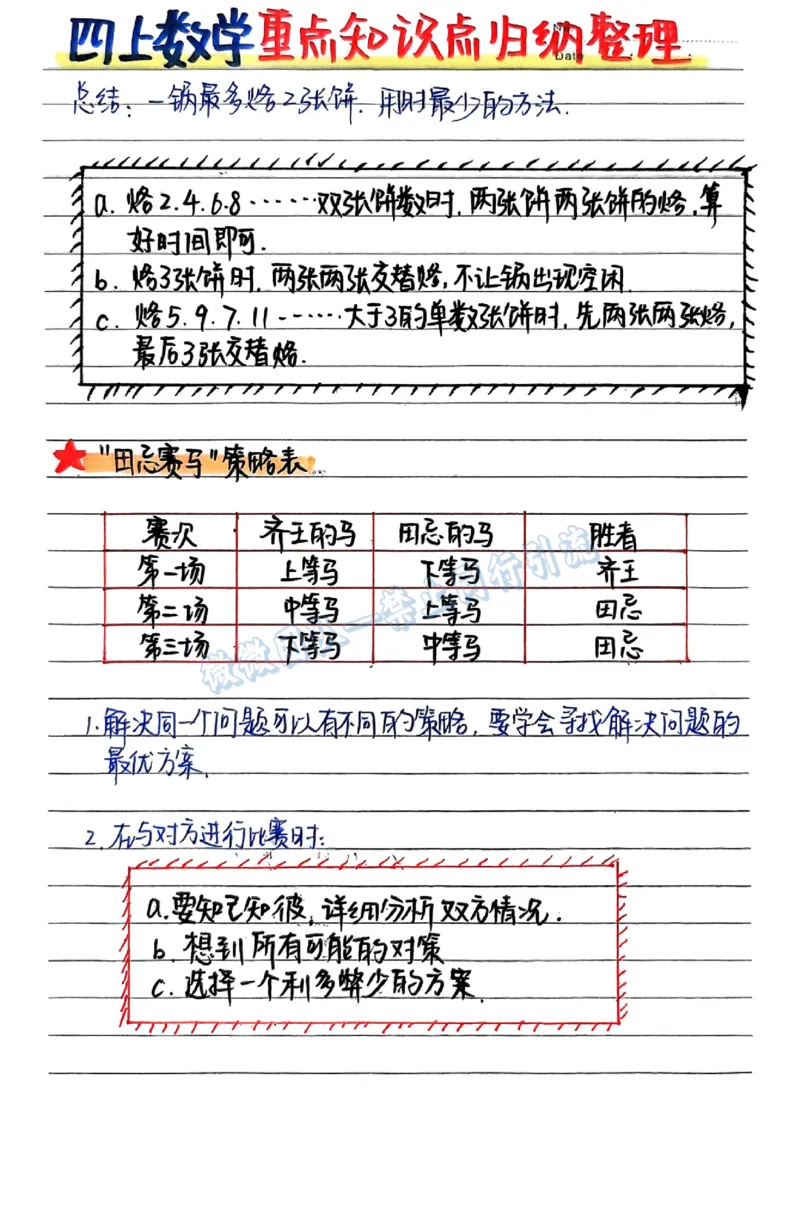 四上数学重点知识点归纳整理
No.
Date
总结：一锅最多烙2张饼．用时最少的方法．
a. 烙2.4.6.8······双张饼数时，两张饼两张饼的烙，算
好时间即可．
b. 烙3张饼时，两张两张交替烙，不让锅出现空闲．
c. 烙5.9.7.11······大于3的单数张饼时，先两张两张烙，
最后3张交替烙．
“田忌赛马”策略表
赛次 齐王的马 田忌的马 胜者
第一场 上等马 下等马 齐王
第二场 中等马 上等马 田忌
第三场 下等马 中等马 田忌
1. 解决同一个问题可以有不同的策略，要学会寻找解决问题的
最优方案．
2. 在与对方进行比赛时：
a. 要知己知彼，详细分析双方情况．
b. 想到所有可能的对策
c. 选择一个利多弊少的方案．